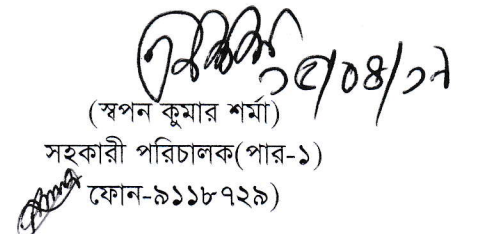 ১৫/০৪/১৭
(স্বপন কুমার শর্মা)
সহকারী পরিচালক(পার-১)
ফোন-৯১১৮৭২৯)